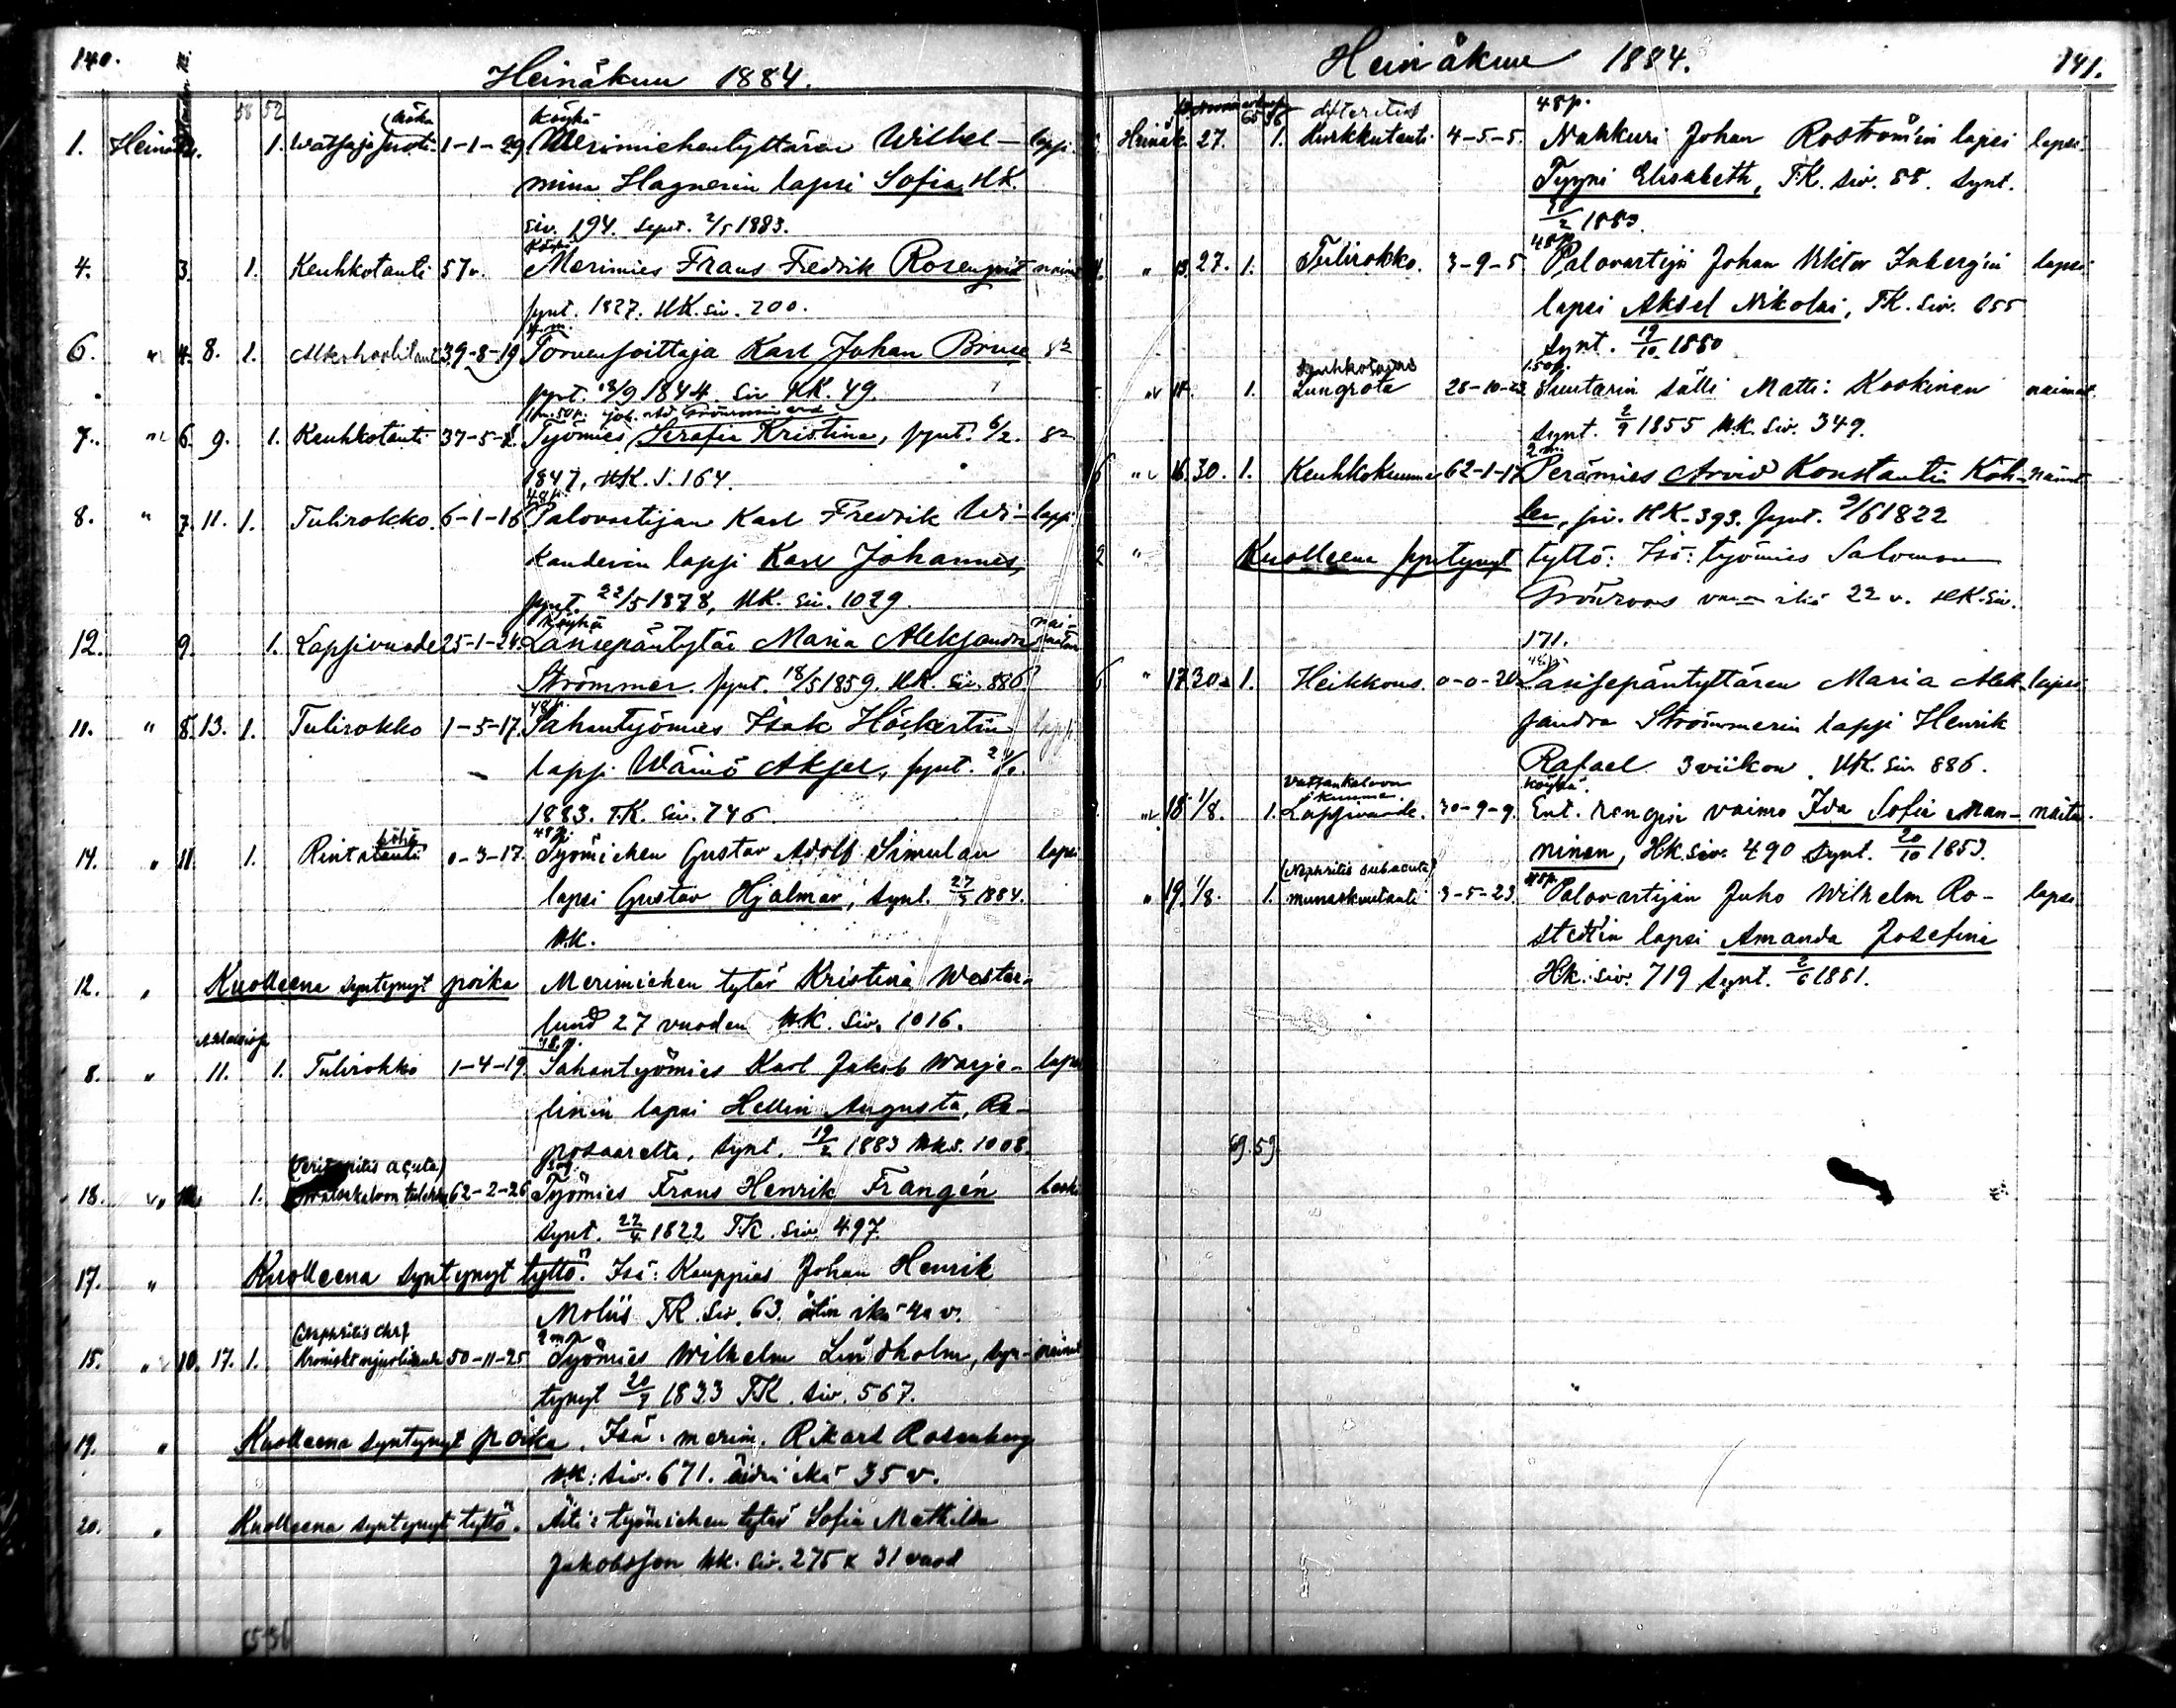 140.
Heinäkuu 1884.
58 52
köyhä
1. Heinäk. 1. watsa ja 1-1-29. Merimiehentyttären Wilhel- lapsi
mina Hagnerin lapsi Sofia HK.
siv. 194. synt. 2/5 1883.
köyhä
4. 3. 1. Keuhkotauti 57 v. Merimies Frans Fredrik Rosenqvist
synt. 1827. HK. siv. 200.
6. " 4. 8. 1. 39-8-19 Torvensoittaja Karl Johan Bruse
synt. 1844. siv HK. 49.
1 m. 50 p.
7. " 6. 9. 1. Keuhkotauti 37-5- Työmies Serafia Kristina, synt. 6/2.
1847, HK. S. 164.
48 p.
8. " 7. 11. 1. Tulirokko. 6-1-16 Palovartijan Karl Fredrik Wi- lapsi
kanderin lapsi Karl Johannes,
synt. 22/5 1878, HK. siv. 1029.
köyhä
12. 9. 1. Lapsivuode 25-1-24. Maria Aleksandra
Strömmer. synt. 18/5 1859. HK. siv. 886.
48 p.
11. " 8. 13. 1. Tulirokko 1-5-17. Sahantyömies Isak Höckertin lapsi
lapsi Wäinö Aksel, synt.
1883. T.K. siv. 746.
48 p.
14. " 11. 1. Rintatauti 0-3-17. Työmiehen Gustav Adolf Simulan lapsi
lapsi Gustav Hjalmar, synt. 27/3 1884.
HK.
12. " Kuolleena syntynyt poika Merimiehen tytär Kristina Wester-
lund 27 vuoden HK. siv. 1016.
48 p.
8. " 11. 1. Tulirokko 1-4-19. Sahantyömies Karl Jakob Warje- lapsi
linin lapsi Hellin Augusta, Re-
posaarelta, synt. 19/2 1883 HK s. 1008.
(Peritonitis acuta)
18. " 1. 62-2-26 Työmies Frans Henrik Frangén leski
synt. 22/4 1822 T.K. siv. 497.
17. " Kuolleena syntynyt tyttö. Isä: Kauppias Johan Henrik
Moliis T.K. siv. 63. äitin ikä 40 v.
(Nephritis chr)
15. " 10. 17. 1. 50-11-25 Työmies Wilhelm Lindholm, syn- nainut
tynyt 20/7 1833 T.K. siv. 567.
19. " Kuolleena syntynyt poika. Isä: merim. Rikard Rosenberg
HK: siv. 671. äidin ikä 35 v.
20. " Kuolleena syntynyt tyttö. Äiti: työmiehen tytär Sofia Mathilda
Jakobsson HK. siv. 275 31 vuod
Heinäkuu 1884.
141.
65 56 difteritis 48 p.
Heinäk. 27. 1. Kurkkutauti 4-5-5. Nahkuri Johan Roström'in lapsi lapsi
Tyyni Elisabeth, T.K. siv. 88. synt.
1883.
48 p.
" 13. 27. 1. Tulirokko. 3-9-5 Palovartija Johan Viktor Inberg'in lapsi
lapsi Aksel Nikolai, T.K. siv. 655
synt. 19/10 1880
1.50 p.
" 14. 1. Lungrota 28-10-23 Suutarin sälli Matti: Koskinen naimat.
synt. 2/9 1855 HK. siv. 349.
2 m.
" 16. 30. 1. 62-1-17 Perämies Arvid Konstantin Köh- nainut
ler, siv. HK. 393. synt. 9/6 1822
" Kuolleena syntynyt tyttö: Isä: työmies Salomon
Grönroos ikä 22 v. HK. siv.
171.
48 p.
" 17. 30. 1. Heikkous. 0-0-20 Maria Alek- lapsi
sandra Strömmerin lapsi Henrik
Rafael 3 viikon. HK. siv 886.
köyhä.
" 18. 1/8. 1. Lapsivuode. 30-9-9. Ent. rengin vaimo Ida Sofia Man-
ninen, HK. siv. 490 synt. 20/10 1853.
(Nephritis subacuta) 48 p.
" 19. 1/8. 1. munaskuutauti 3-5-23. Palovartijan Juho Wilhelm Ro- lapsi
stedt'in lapsi Amanda Josefina
HK. siv. 719 synt. 2/6 1881.
69. 59.